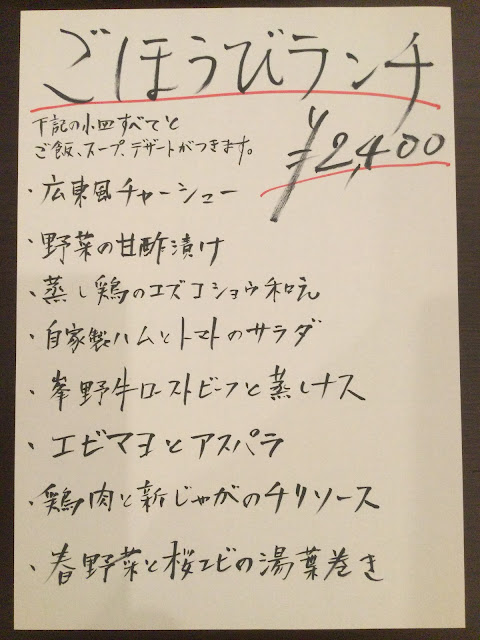 ごほうびランチ
下記の小皿すべてと
ご飯、スープ、デザートがつきます。
¥2,400
・広東風チャーシュー
・野菜の甘酢漬け
・蒸し鶏のユズコショウ和え
・自家製ハムとトマトのサラダ
・峯野牛ローストビーフと蒸しナス
・エビマヨとアスパラ
・鶏肉と新じゃがのチリソース
・春野菜と桜エビの湯葉巻き